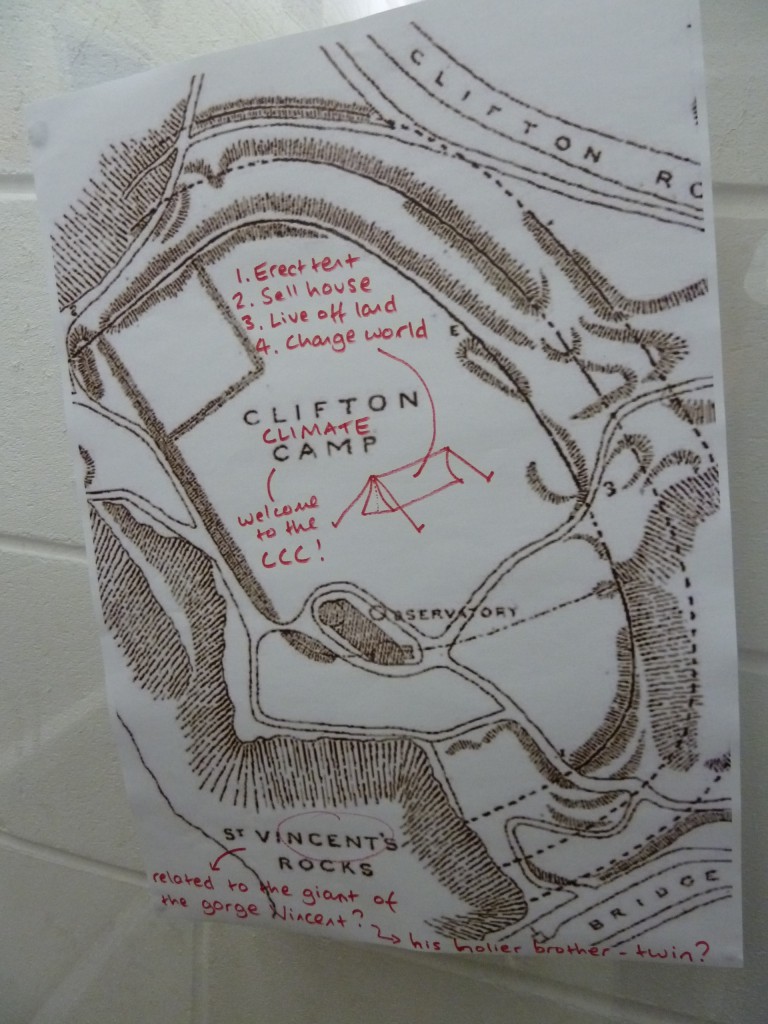 CLIFTON RO
1. Erect tent
2. Sell house
3. Live off land
4. Change world
E
CLIFTON
CLIMATE
CAMP
welcome
to the
CCC!
3
OBSERVATORY
ST VINCENT'S
ROCKS
related to the giant of
the gorge Vincent?
his holier brother - twin?
BRIDGE